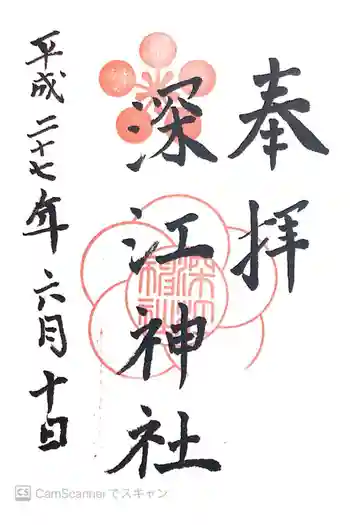 奉拝
深江神社
平成二十七年六月十日
深江
神社
CS CamScanner でスキャン